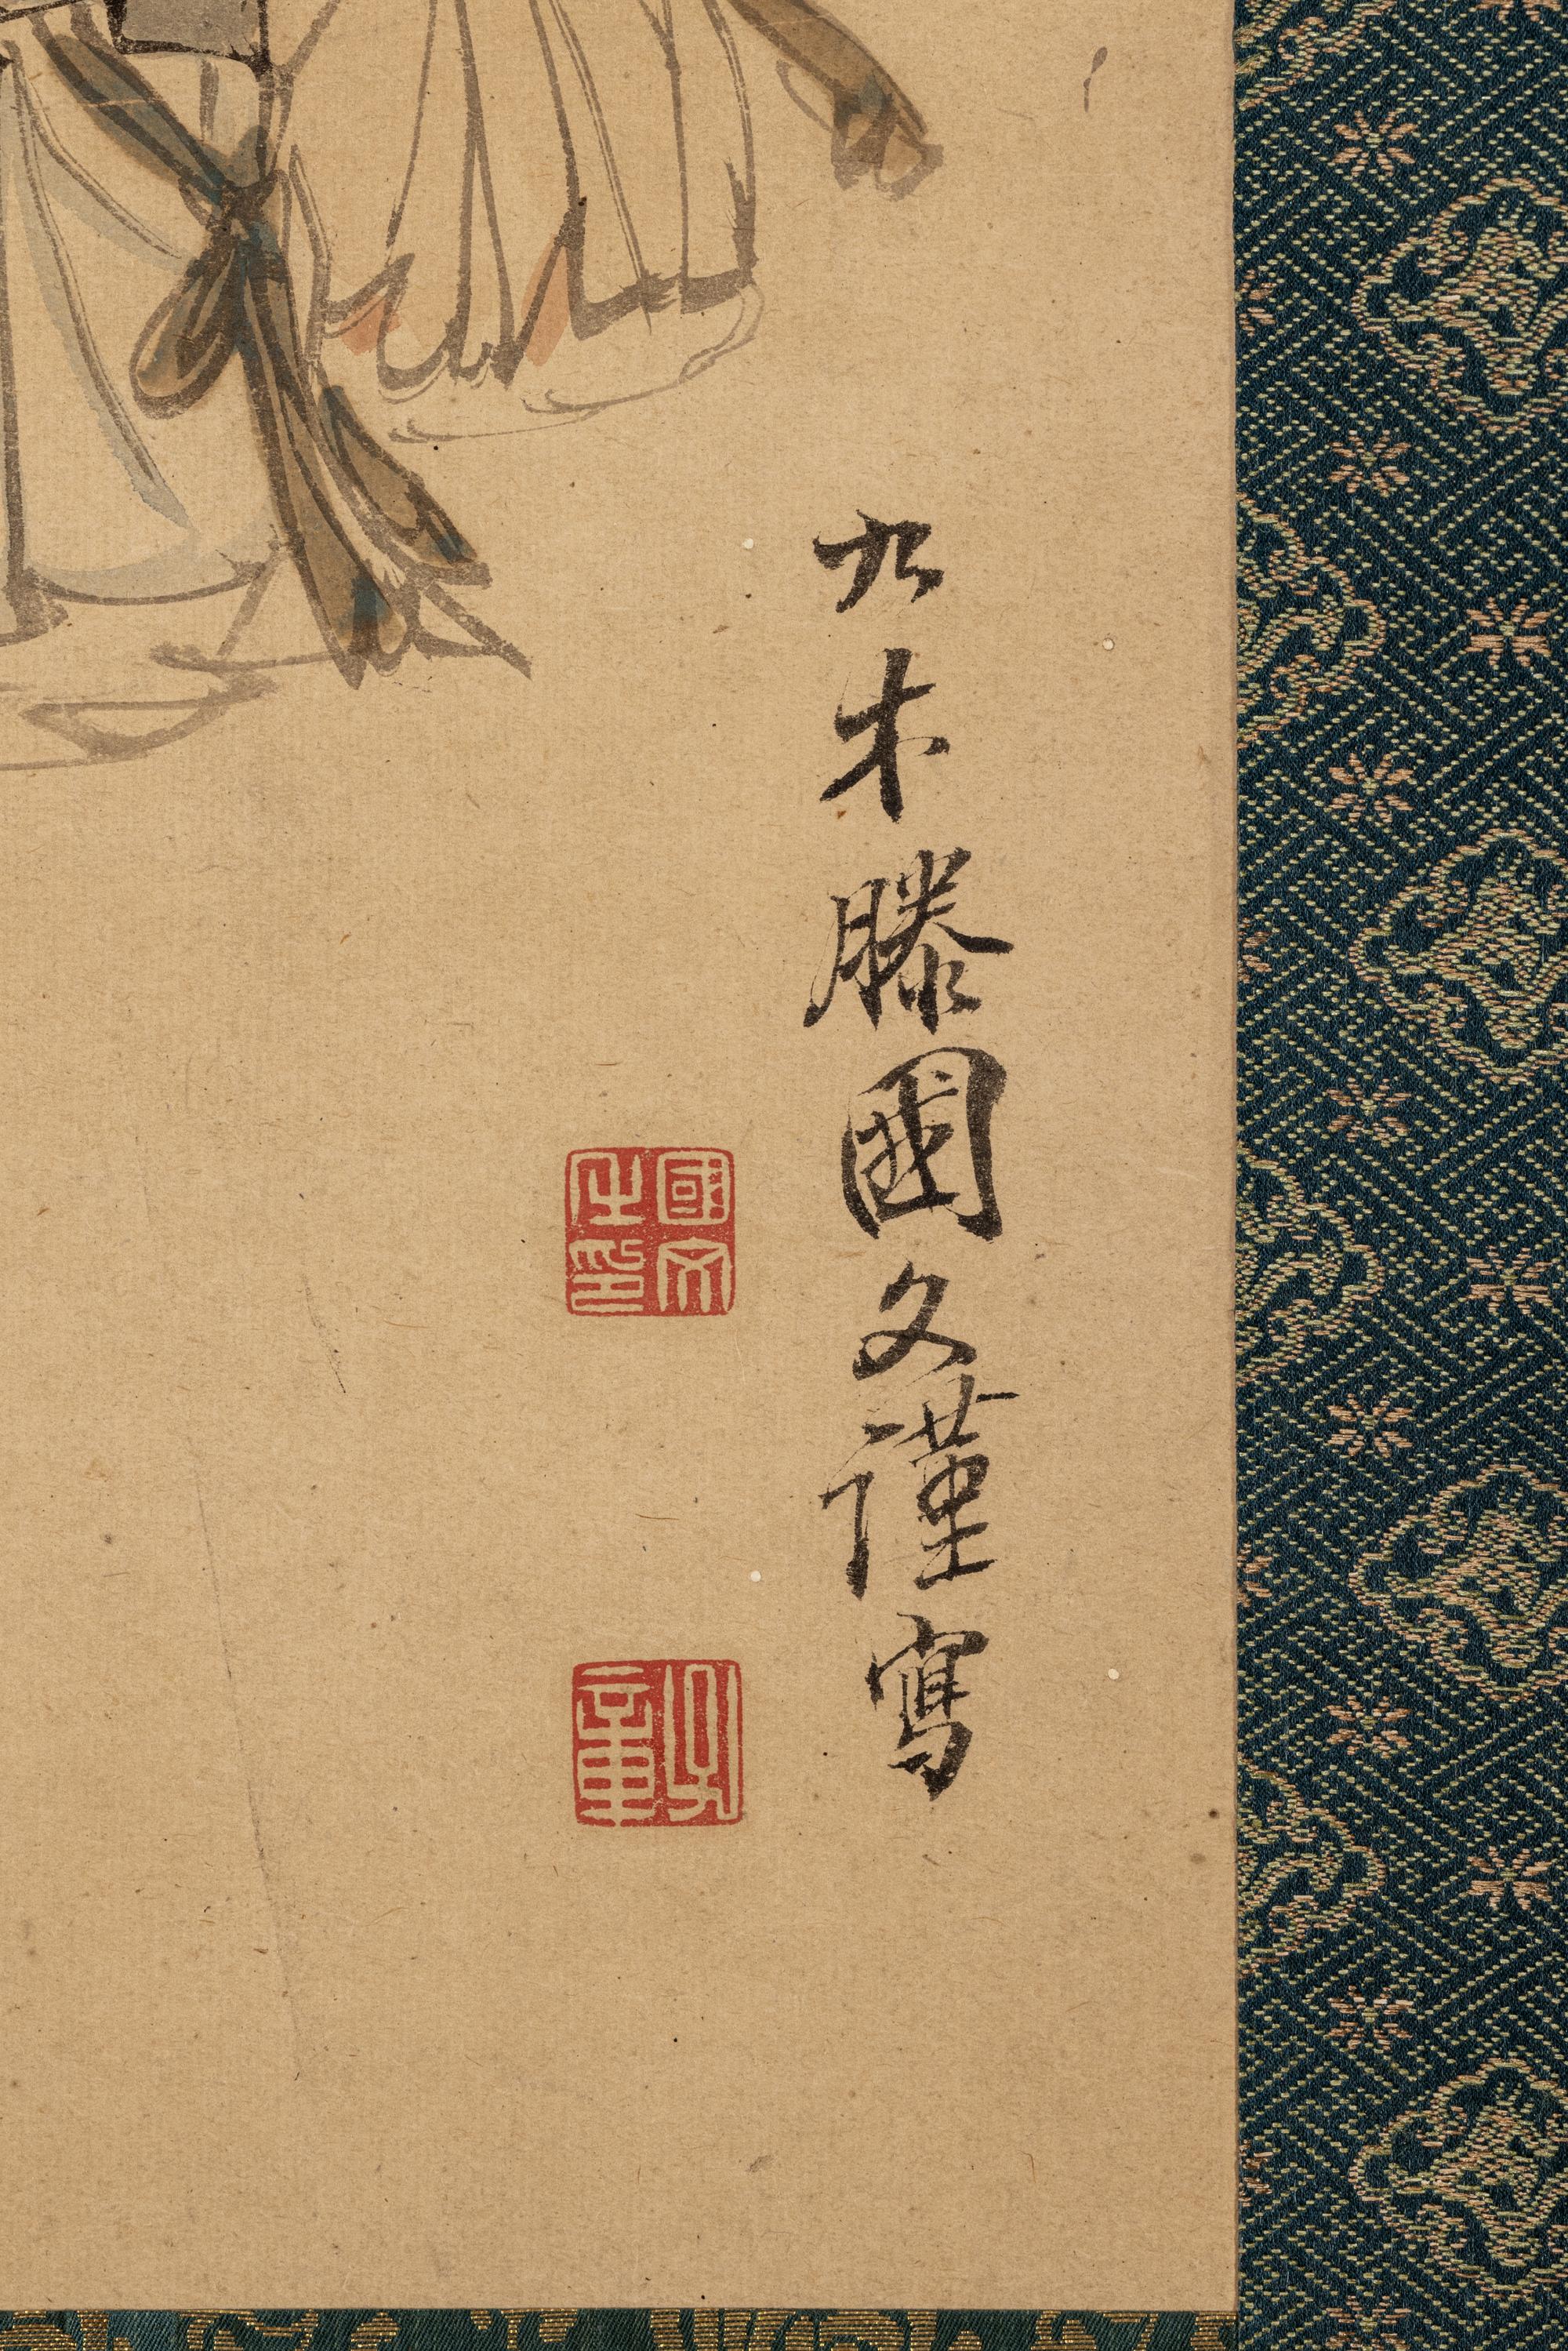 九木滕國文謹寫
國文
之印